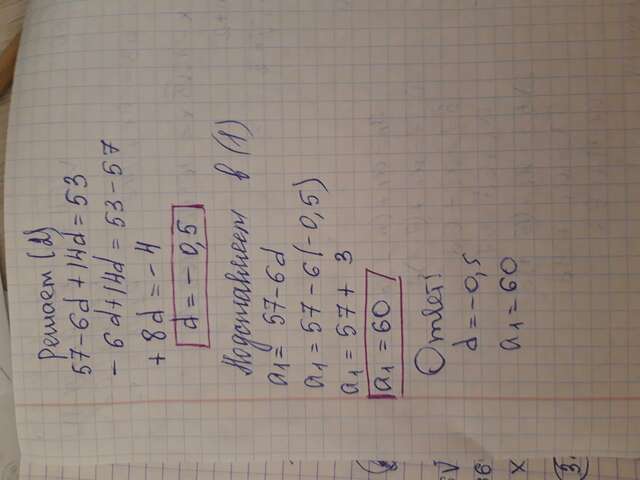 Решаем (2)
57-6d+14d=53
-6d+14d=53-57
+8d=-4
d=-0,5
Подставляем в (1)
a₁=57-6d
a₁=57-6(-0,5)
a₁=57+3
a₁=60
Ответ:
d=-0,5
a₁=60